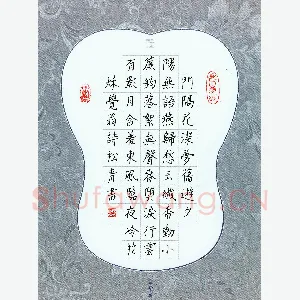 門隔花深夢舊遊夕
陽無語燕歸愁玉纖香動小
簾鉤落絮無聲春墮淚行雲
有影月含羞東風臨夜冷於
秋覺翁詩松青書
Shufawang.CN